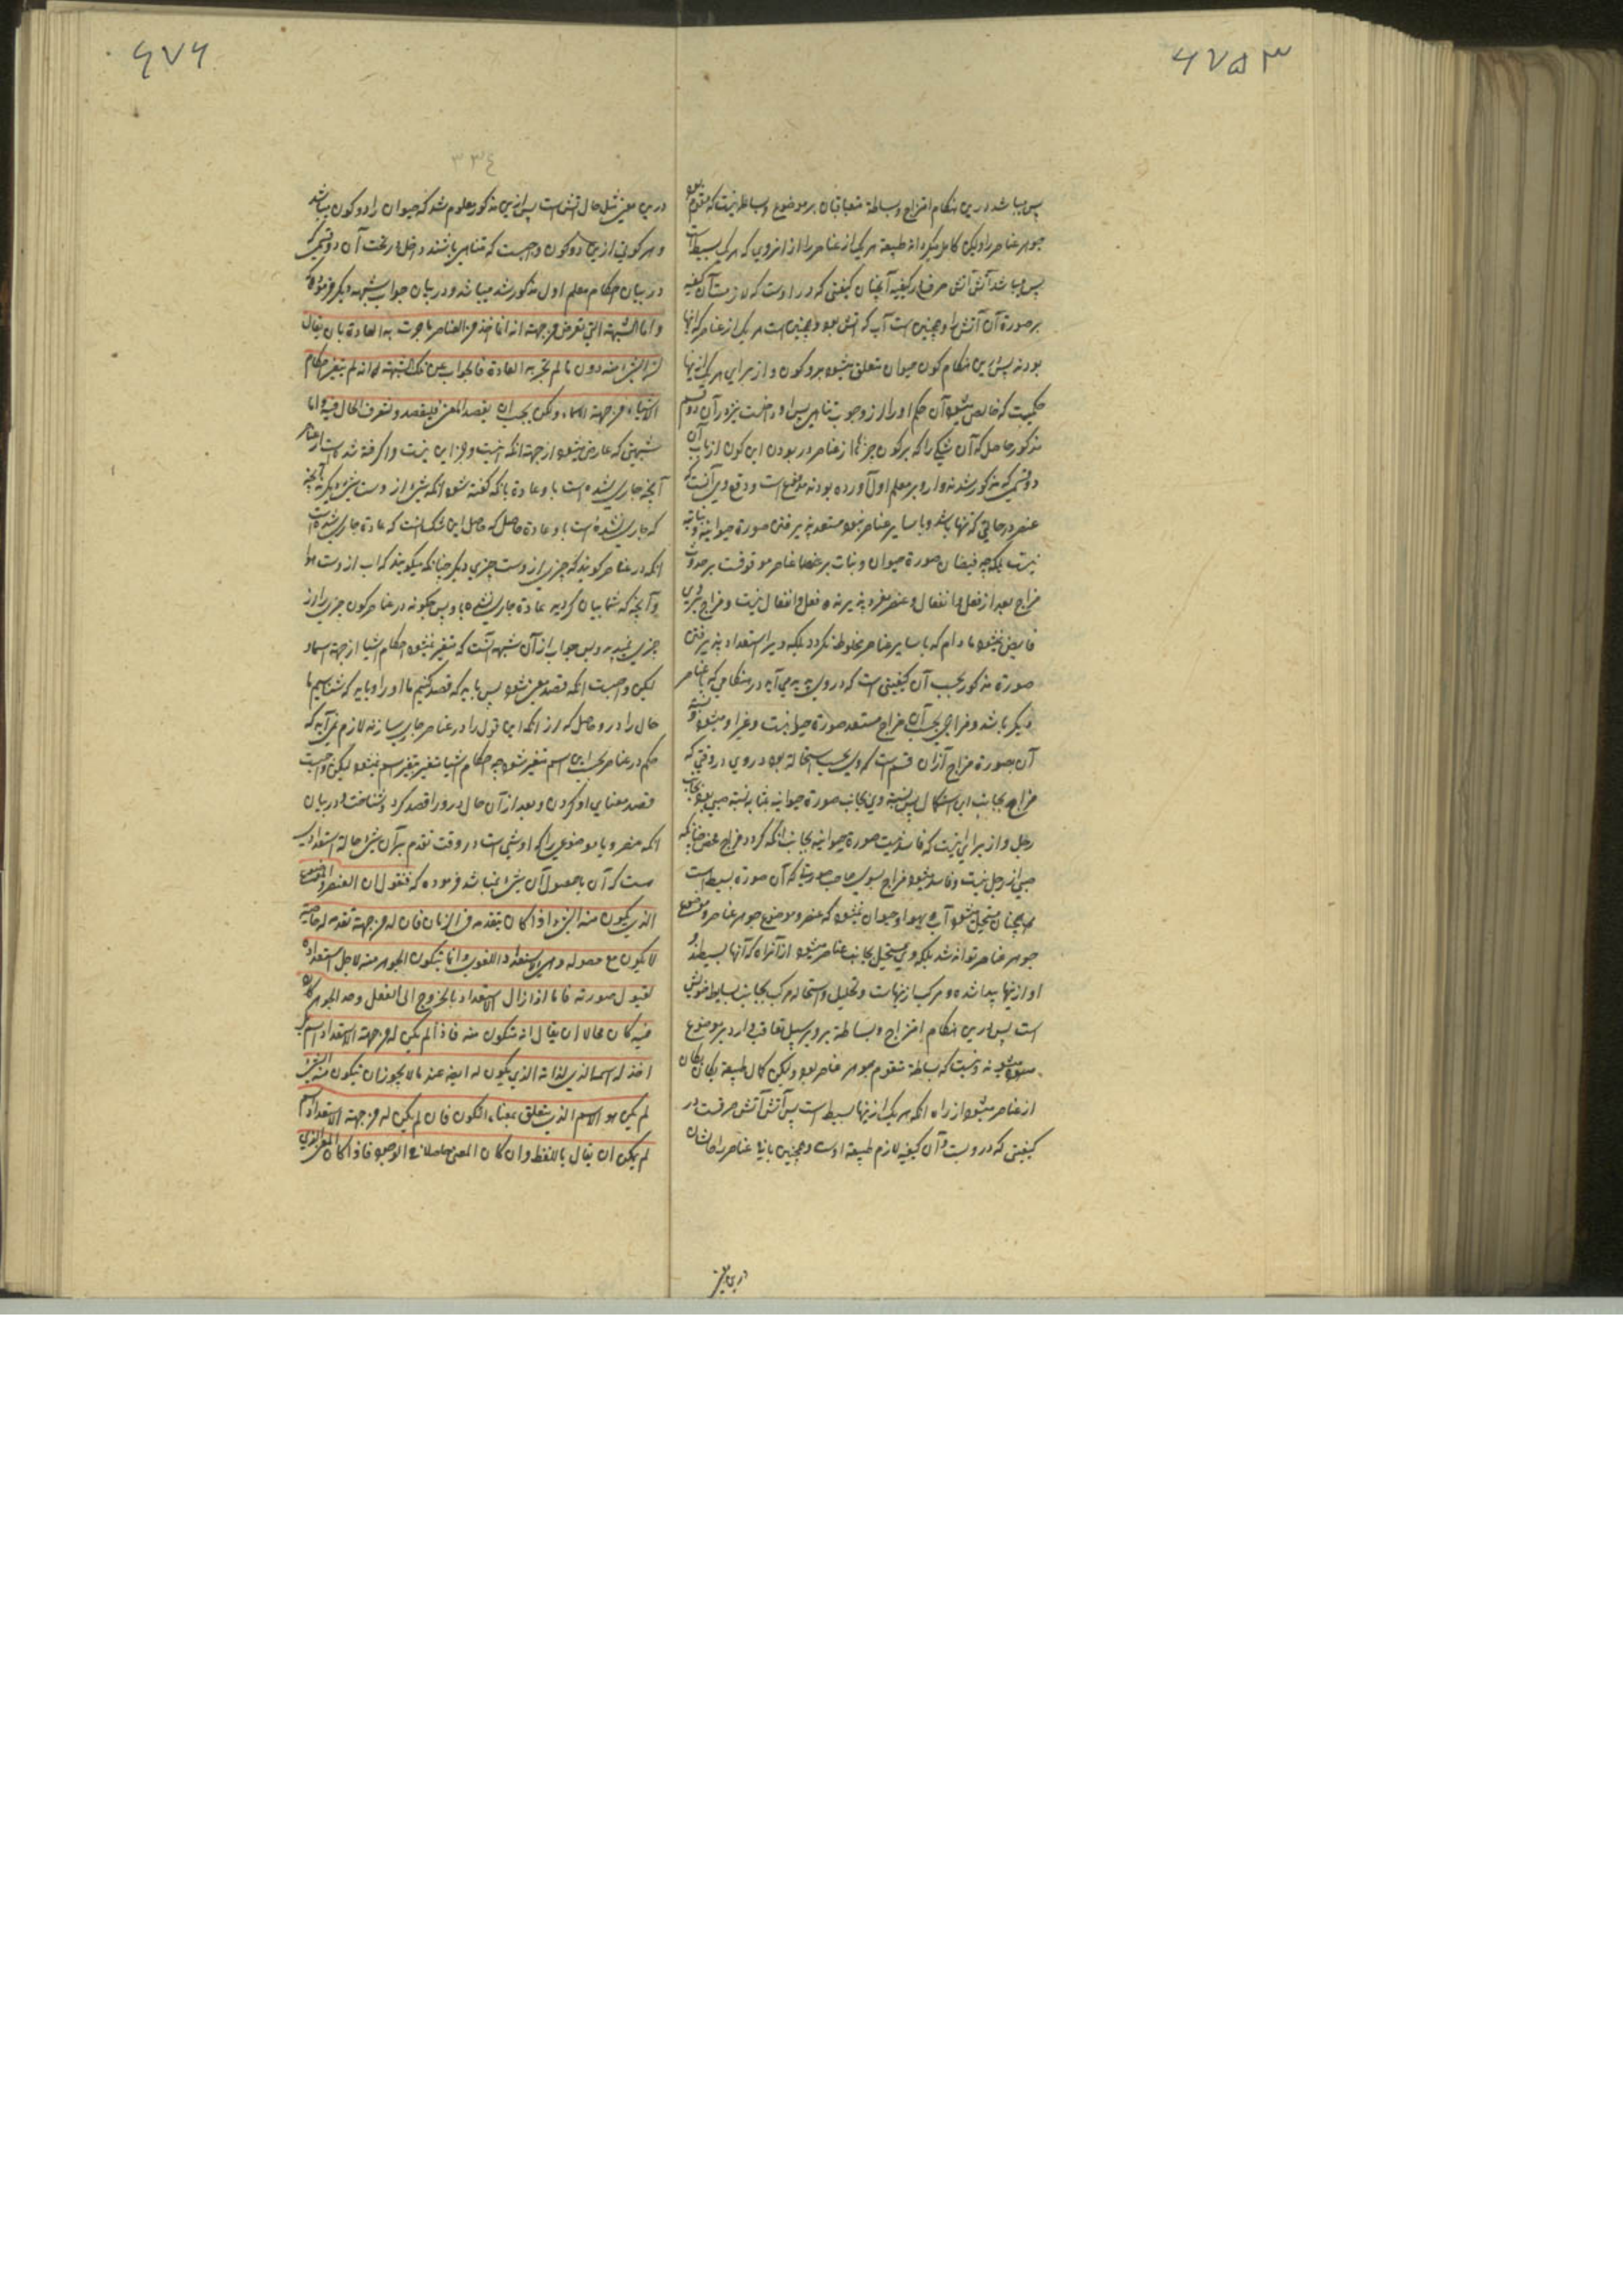 ۶۷۵۳
پس میباشد درین هنگام امتزاج وبساطة متعاقبان بر موضوع وبساطة نیست که مقوم بود
جوهر عناصر را ولیکن کامل میکرداند طبیعة هر یک از عناصر را از انروی که هر یک بسیط است
پس میباشد آتش آتش صرف در کیفیه آنچنان کیفیتی که در اوست که لازمست آن کیفیه
بر صورة آن آتش را وهمچنین است آب که آتش بود وهمچنین است هر یک از عناصر که انها
بودند پس درین هنگام کون حیوان متعلق میشود بدو کون و از برای هر یک ازینها
حکمیست که خالص میشود آن حکم او را از وجوب تناهی پس او داخلست نیز در آن دو قسم
مذکور حاصل که آن شکی را که بر کون چیزها از عناصر در بودن این کون از باب آن
دو قسمی که مذکور شدند وارد بر معلم اول آورده بودند مندفع است ودفع وی آنست که
عنصر در حالتی که تنها باشد وبا سایر عناصر نبود مستعد پذیرفتن صورة حیوانیه ونباتیه
نیست بلکه چه فیضان صورة حیوان ونبات بر عناصر موقوفست بر حدوث
مزاج بعد از فعل وانفعال وعنصر مفرد پذیرنده فعل وانفعال نیست ومزاج بروی
فایض نمیشود مادام که با سایر عناصر مخلوط نکردد بلکه ویرا استعداد پذیرفتن
صورة مذکور بحسب آن کیفیتی است که در وی پدید می آید در هنگامی که با عناصر
دیکر باشد ومزاجی بحسب آن مزاج مستعد صورة حیوانیت وغیر او میشود
آن بصورة مزاج آنزان قسم است که وی بحسب استحالة بود در وی در وقتی که
مزاج بجانب این استکمال پس نسبة وی بجانب صورة حیوانیه بمثابه نسبة صبی بود بجانب
رجل و از برای اینست که فاسد نیست صورة حیوانیه بجانب انکه کردد مزاج محض چنانکه
صبی از رجل نیست وفاسد میشود مزاج بسوی صاحب صورتها که آن صورة بسیط است
همچنان مستحیل میشود آب به هوا وحیوان نمیشود که عنصر وموضوع جوهر عناصر وموضوع
جوهر عناصر تواند شد بلکه وی مستحیل بجانب عناصر میشود از آنراه که آنها بسیطند و
او ازینها پیدا شده ومرکب ازینهاست وتحلیل واستحاله مرکب بجانب بسایط خویش
است پس درین هنگام امتزاج وبساطة برو بر سبیل تعاقب وارد بر موضوع
میشوند ونیست که بساطة مقوم جوهر عناصر بود ولیکن کمال طبیعة یکان یکان
از عناصر میشود از راه انکه هر یک ازینها بسیط است پس آتش آتش صرفست در
کیفیتی که در ویست وآن کیفیه لازم طبیعة اوست وهمچنین باقی عناصر را حالشان
درین معنی
۶۷۶
۳۳٤
درین معنی مثل حال آتش است پس ازین مذکور معلوم شد که حیوان را دو کون میباشد
وهر کونی ازین دو کون واجبست که متناهی باشند وداخل در تحت آن دو قسمی که
در بیان احکام معلم اول مذکور شد میباشد ودر بیان جواب شبهه دیکر فرموده که
واما الشبهة التی تعرض من جهة انه انما اخذ من العناصر ما جرت به العادة بان یقال
ان الشئ منه دون ما لم تجر به العادة فالجواب عن تلک الشبهة انه لم یتغیر احکام
الاشیاء من جهة الاسماء ولکن یجب ان یقصد المعنی فلیقصد ولنعرف الحال فیه واما
شبهتی که عارض میشود از جهة انکه اینست وجز این نیست واکرفته شده است از عناصر
آنچه جاری شده است باو عادة بانکه کفته شود انکه شئ از وست بغیر دیکر نه آنچه
که جاری نشده است باو عادة حاصل که حاصل این شک انست که عادة جاری شده است
انکه در عناصر کویند که چیزی از وست چیزی دیکر چنانکه میکویند که آب از وست هوا
وآنچه که شما بیان کردید عادة جاری نشده باو پس چکونه در عناصر کون چیزی را از
چیزی نمیدید وپس جواب از آن شبهه آنست که متغیر نمیشود احکام اشیا از جهة اسماء
لیکن واجبست انکه قصد معنی شود پس باید که قصد کنیم ما او را وباید که بشناسیم ما
حال را درو حاصل که از انکه این قول را در عناصر جاری سازند لازم نمی آید که
حکم در عناصر بحسب این اسم متغیر شود چه احکام اشیا متغیر بتغیر اسم نمیشود لیکن واجبست
قصد معنای او کردن وبعد از آن حال درو را قصد کرد وشناخت ودر بیان
انکه عنصر ویا موضوعی را که او شیئ است در وقت تقدم بر آن شئ حالة استعدادیه
هست که آن با حصول آن شئ نمیباشد فرموده که فنقول ان العنصر والموضوع
الذی یکون منه الشئ اذا کان یتقدمه فی الزمان فان له من جهة تقدمه له خاصیة
لا یکون مع حصوله وهی الاستعداد القوی وانما یتکون الجوهر منه لاجل استعداده
لقبول صورته فاما اذا زال الاستعداد بالخروج الی الفعل وجد الجوهر وکان
فیه کان محالا ان یقال انه متکون منه فاذا لم یکن له من جهة الاستعداد اسم
اخذ له اسما الذی لذاته الذی یکون له ایضا عند ما لا یجوز ان یتکون منه الشئ
لم یکن هو الاسم الذی یتعلق بمعناه التکون فان لم یکن له من جهة الاستعداد اسم
لم یمکن ان یقال باللفظ وان کان المعنی حاصلا فی الوجود فاذا کان المعنی الذی